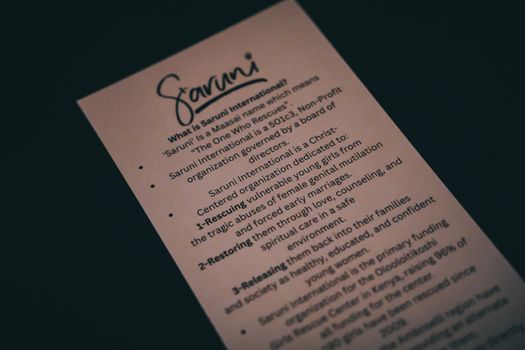 Saruni
What is Saruni International?
'Saruni' is a Maasai name which means
"The One Who Rescues".
Saruni International is a 501c3, Non-Profit
organization governed by a board of
directors.
Saruni International is a Christ-
Centered organization dedicated to:
1-Rescuing vulnerable young girls from
the tragic abuses of female genital mutilation
and forced early marriages.
2-Restoring them through love, counseling, and
spiritual care in a safe
environment.
3-Releasing them back into their families
and society as healthy, educated, and confident
young women.
Saruni International is the primary funding
organization for the Olooloitikoshi
Girls Rescue Center in Kenya, raising 96% of
all funding for the center.
girls have been rescued since
2009.
Amboseli region have
funding an alternate
them.